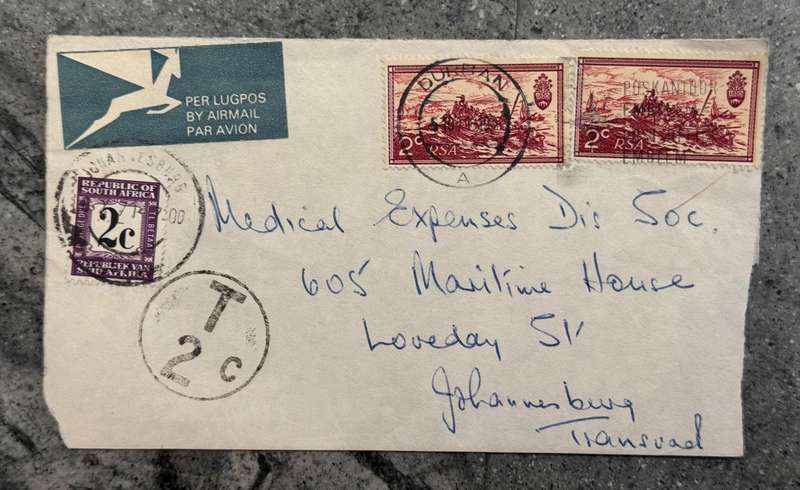 PER LUGPOS
BY AIRMAIL
PAR AVION
DURBAN
A
2c
RSA
2c
RSA
POSKANTOOR
EMBLEEM
JOHANNESBURG
REPUBLIC OF
SOUTH AFRICA
2c
TE BETAAL
REPUBLIEK VAN
SUID-AFRIKA
T
2c
Medical Expenses Dis Soc.
605 Maritime House
Loveday St
Johannesburg
Transvaal